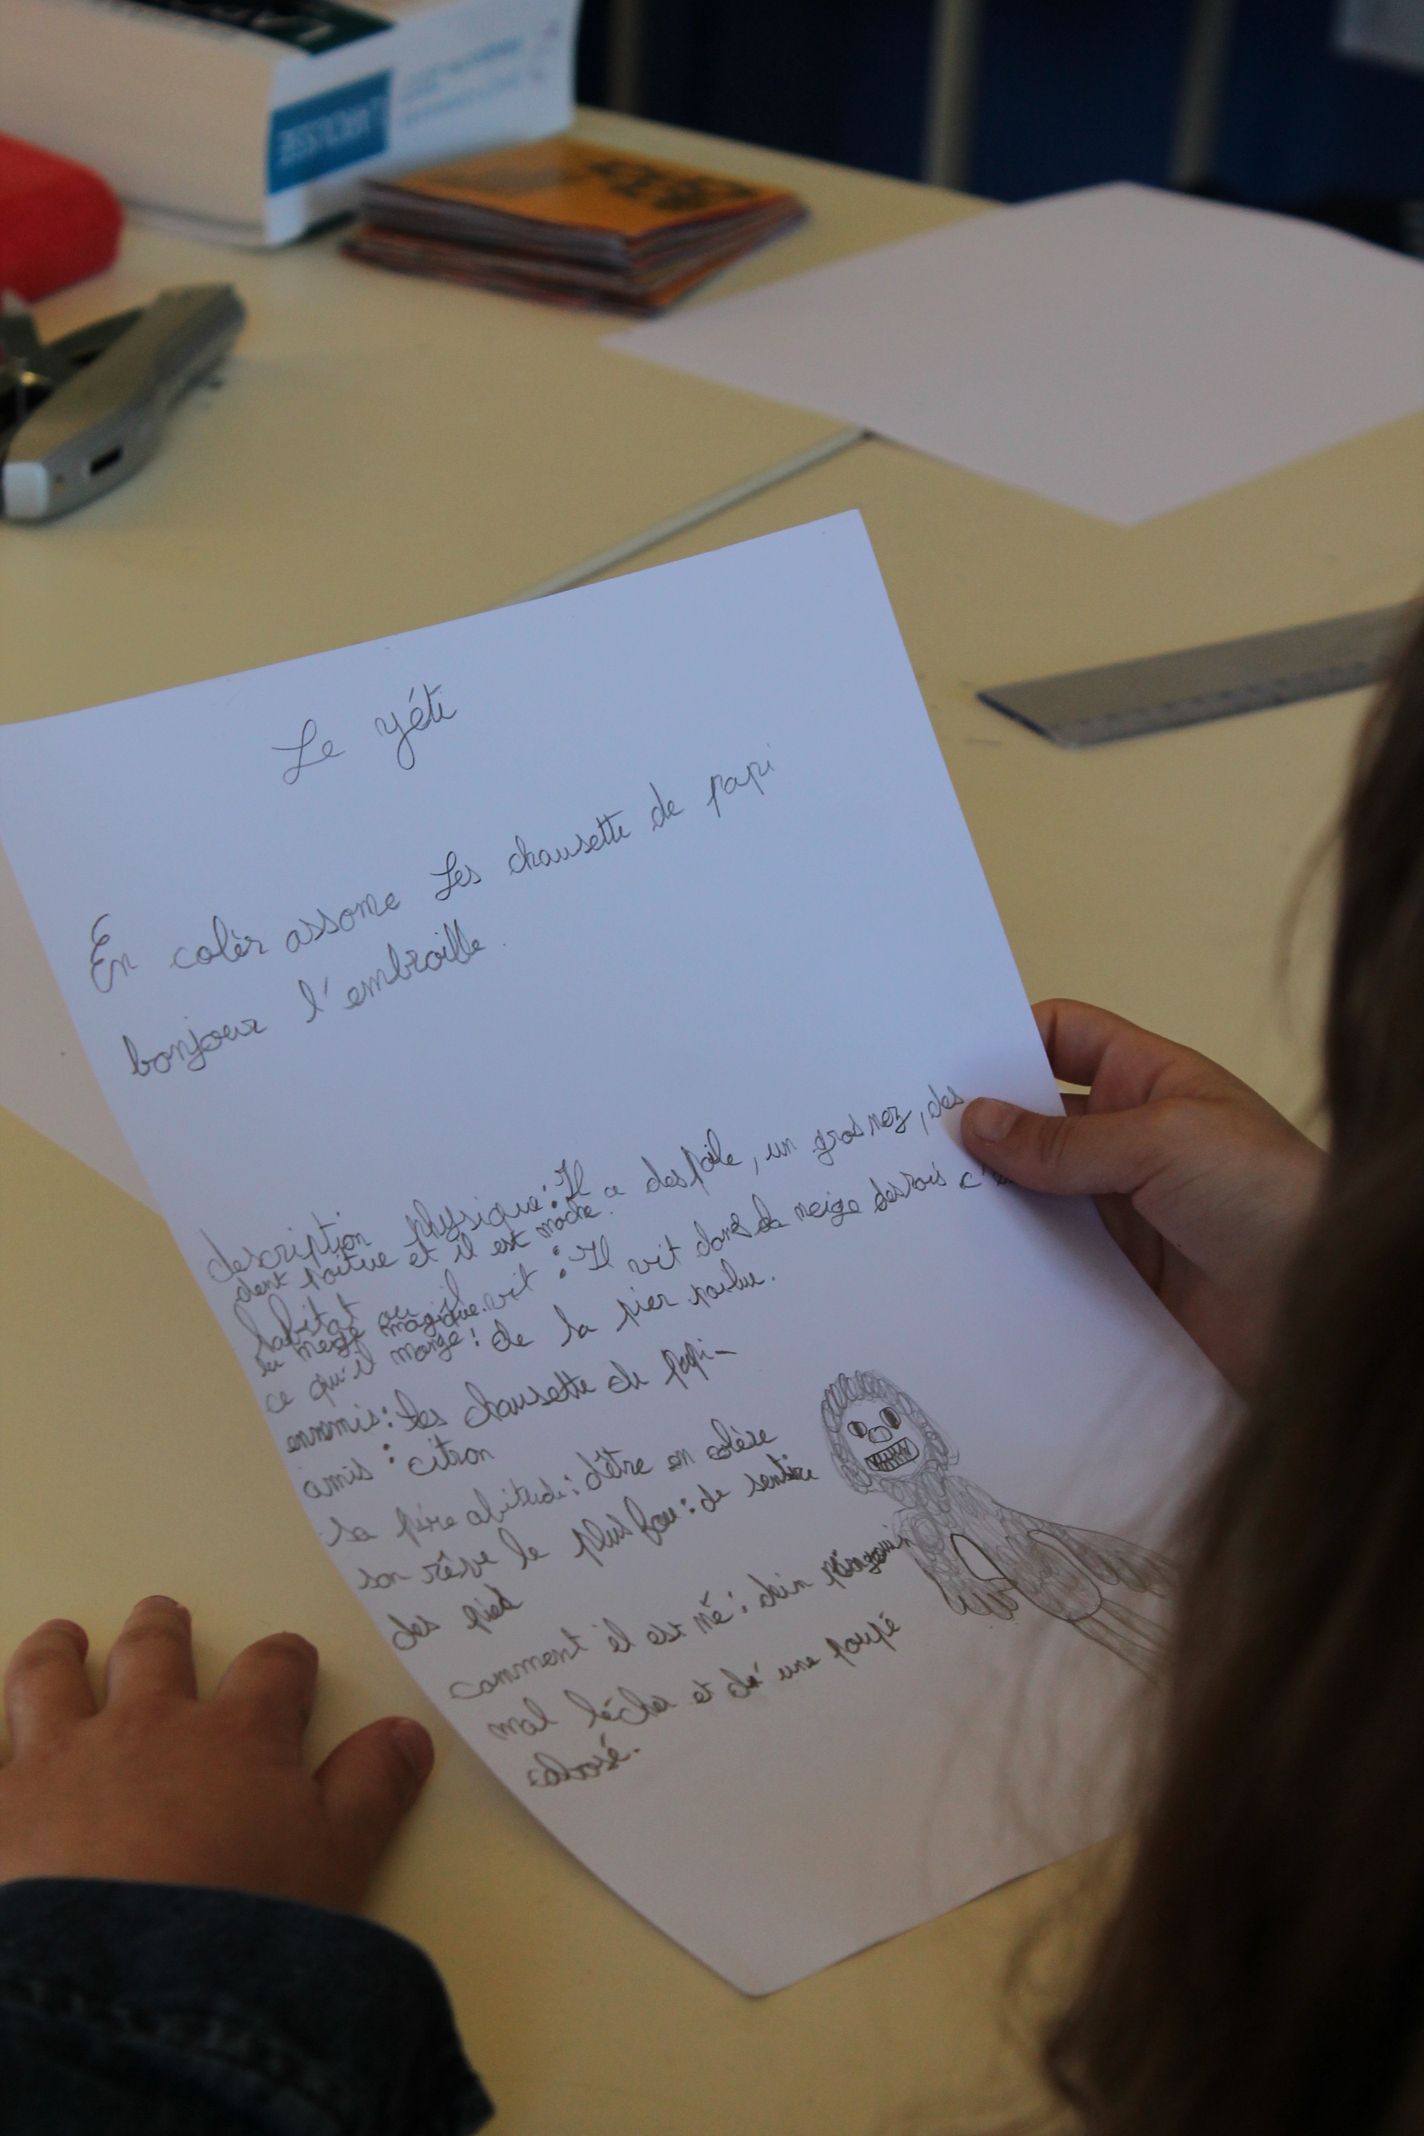 Le yéti
En colèr assome Les chausette de papi
bonjour l'embroille.
description physique: Il a des poile, un gros nez, des
dent pointue et il est moche.
habitat ou il vit : Il vit dans la neige
la neige magique.
ce qu'il mange: de la pier poilue.
ennmis: les chausette de papi
amis : citron
sa pire abitude: d'être en colère
son rêve le plus fou: de sentire
des pied
comment il est né: d'un pingouin
mal lècher et d'une poupé
cabosé.